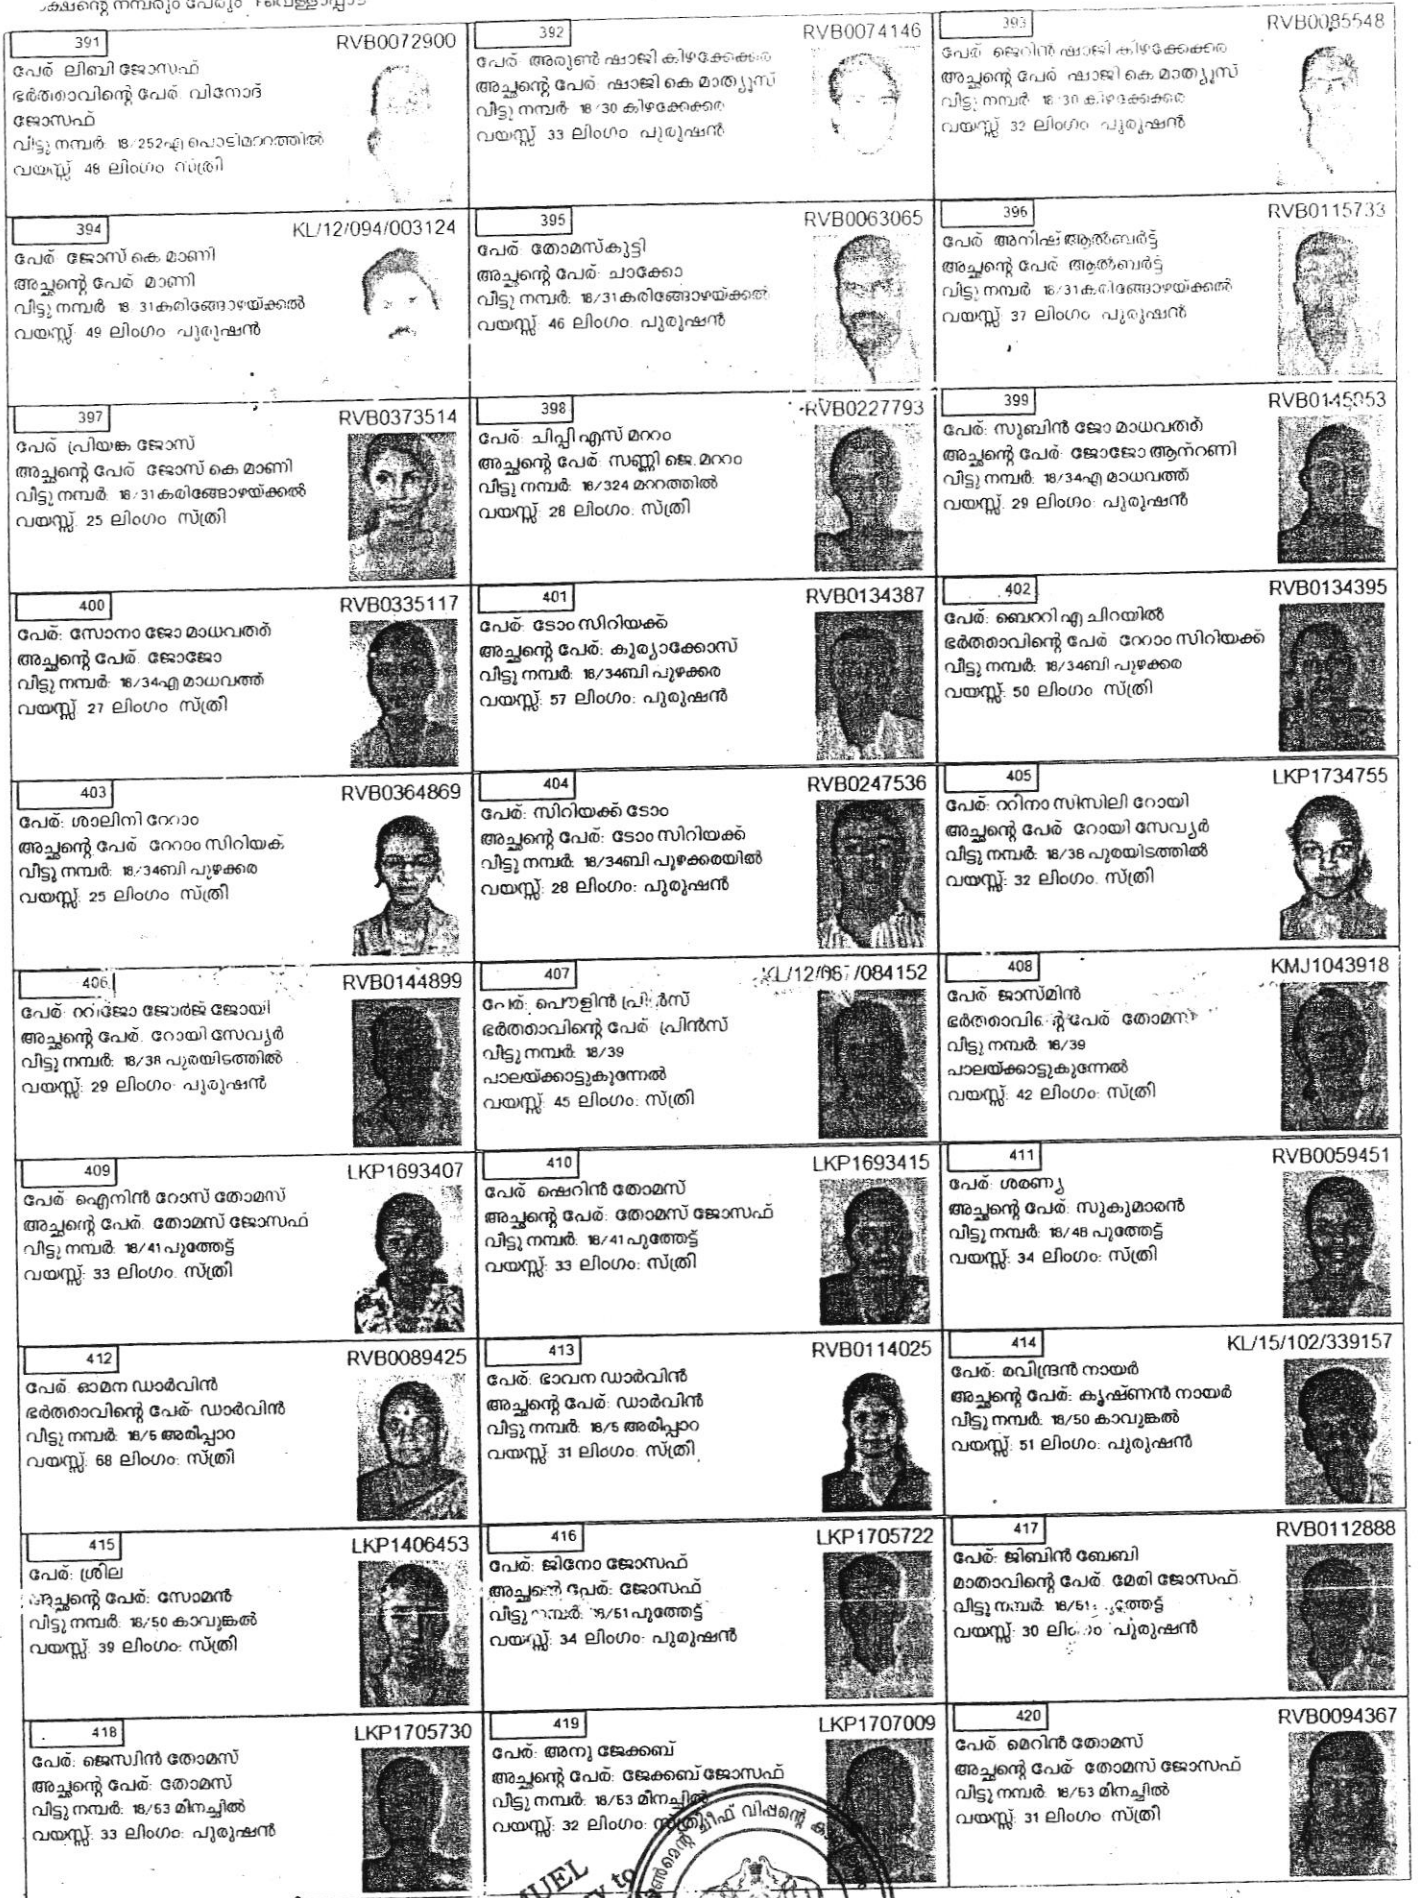 നമ്പരും പേരും
391 RVB0072900
പേര് ലിബി ജോസഫ്
ഭർത്താവിന്റെ പേര് വിനോദ്
ജോസഫ്
വീട്ടു നമ്പർ 18/252എ പൊടിമറ്റത്തിൽ
വയസ്സ് 48 ലിംഗം സ്ത്രീ
392 RVB0074146
പേര് അരുൺ ഷാജി കിഴക്കേക്കര
അച്ഛന്റെ പേര് ഷാജി കെ മാത്യൂസ്
വീട്ടു നമ്പർ 18/30 കിഴക്കേക്കര
വയസ്സ് 33 ലിംഗം പുരുഷൻ
393 RVB0085548
പേര് ജെറിൻ ഷാജി കിഴക്കേക്കര
അച്ഛന്റെ പേര് ഷാജി കെ മാത്യൂസ്
വീട്ടു നമ്പർ 18/30 കിഴക്കേക്കര
വയസ്സ് 32 ലിംഗം പുരുഷൻ
394 KL/12/094/003124
പേര് ജോസ് കെ മാണി
അച്ഛന്റെ പേര് മാണി
വീട്ടു നമ്പർ 18/31കരിങ്ങോഴയ്ക്കൽ
വയസ്സ് 49 ലിംഗം പുരുഷൻ
395 RVB0063065
പേര് തോമസ്കുട്ടി
അച്ഛന്റെ പേര് ചാക്കോ
വീട്ടു നമ്പർ: 18/31കരിങ്ങോഴയ്ക്കൽ
വയസ്സ് 46 ലിംഗം പുരുഷൻ
396 RVB0115733
പേര് അനിഷ് ആൽബർട്ട്
അച്ഛന്റെ പേര് ആൽബർട്ട്
വീട്ടു നമ്പർ 18/31കരിങ്ങോഴയ്ക്കൽ
വയസ്സ് 37 ലിംഗം പുരുഷൻ
397 RVB0373514
പേര് പ്രിയങ്ക ജോസ്
അച്ഛന്റെ പേര് ജോസ് കെ മാണി
വീട്ടു നമ്പർ 18/31കരിങ്ങോഴയ്ക്കൽ
വയസ്സ് 25 ലിംഗം സ്ത്രീ
398 RVB0227793
പേര്: ചിപ്പി എസ് മററം
അച്ഛന്റെ പേര് സണ്ണി ജെ.മററം
വീട്ടു നമ്പർ: 18/324 മററത്തിൽ
വയസ്സ് 28 ലിംഗം: സ്ത്രീ
399
പേര്: സുബിൻ ജോ മാധവത്ത്
അച്ഛന്റെ പേര് ജോജോ ആന്റണി
വീട്ടു നമ്പർ: 18/34എ മാധവത്ത്
വയസ്സ് 29 ലിംഗം: പുരുഷൻ
400 RVB0335117
പേര്: സോനാ ജോ മാധവത്ത്
അച്ഛന്റെ പേര്: ജോജോ
വീട്ടു നമ്പർ: 18/34എ മാധവത്ത്
വയസ്സ് 27 ലിംഗം സ്ത്രീ
401 RVB0134387
പേര്: ടോം സിറിയക്ക്
അച്ഛന്റെ പേര്: കുര്യാക്കോസ്
വീട്ടു നമ്പർ: 18/34ബി പുഴക്കര
വയസ്സ്: 57 ലിംഗം: പുരുഷൻ
402 RVB0134395
പേര്: ബെററി എ ചിറയിൽ
ഭർത്താവിന്റെ പേര് റേറാം സിറിയക്ക്
വീട്ടു നമ്പർ: 18/34ബി പുഴക്കര
വയസ്സ്: 50 ലിംഗം സ്ത്രീ
403 RVB0364869
പേര്: ശാലിനി റേറാം
അച്ഛന്റെ പേര് റേറാം സിറിയക്
വീട്ടു നമ്പർ: 18/34ബി പുഴക്കര
വയസ്സ് 25 ലിംഗം സ്ത്രീ
404 RVB0247536
പേര്: സിറിയക്ക് ടോം
അച്ഛന്റെ പേര്: ടോം സിറിയക്ക്
വീട്ടു നമ്പർ: 18/34ബി പുഴക്കരയിൽ
വയസ്സ്: 28 ലിംഗം: പുരുഷൻ
405 LKP1734755
പേര്: ററിനാ സിസിലി റോയി
അച്ഛന്റെ പേര് റോയി സേവ്യർ
വീട്ടു നമ്പർ: 18/38 പുരയിടത്തിൽ
വയസ്സ് 32 ലിംഗം: സ്ത്രീ
406 RVB0144899
പേര് ററിജോ ജോർജ് ജോയി
അച്ഛന്റെ പേര്. റോയി സേവ്യർ
വീട്ടു നമ്പർ: 18/38 പുരയിടത്തിൽ
വയസ്സ്: 29 ലിംഗം: പുരുഷൻ
407
പേര്: പൌളിൻ പ്രിൻസ്
ഭർത്താവിന്റെ പേര് പ്രിൻസ്
വീട്ടു നമ്പർ: 18/39
പാലയ്ക്കാട്ടുകുന്നേൽ
വയസ്സ് 45 ലിംഗം: സ്ത്രീ
408 KMJ1043918
പേര് ജാസ്മിൻ
ഭർത്താവിന്റെ പേര് തോമസ്
വീട്ടു നമ്പർ: 18/39
പാലയ്ക്കാട്ടുകുന്നേൽ
വയസ്സ് 42 ലിംഗം: സ്ത്രീ
409 LKP1693407
പേര് ഐനിൻ റോസ് തോമസ്
അച്ഛന്റെ പേര്. തോമസ് ജോസഫ്
വീട്ടു നമ്പർ: 18/41 പുത്തേട്ട്
വയസ്സ്: 33 ലിംഗം: സ്ത്രീ
410 LKP1693415
പേര് ഷെറിൻ തോമസ്
അച്ഛന്റെ പേര്: തോമസ് ജോസഫ്
വീട്ടു നമ്പർ: 18/41 പുത്തേട്ട്
വയസ്സ്: 33 ലിംഗം: സ്ത്രീ
411 RVB0059451
പേര്: ശരണ്യ
അച്ഛന്റെ പേര്: സുകുമാരൻ
വീട്ടു നമ്പർ: 18/48 പുത്തേട്ട്
വയസ്സ്: 34 ലിംഗം: സ്ത്രീ
412 RVB0089425
പേര്. ഓമന ഡാർവിൻ
ഭർത്താവിന്റെ പേര്: ഡാർവിൻ
വീട്ടു നമ്പർ: 18/5 അരിപ്പാറ
വയസ്സ്: 68 ലിംഗം: സ്ത്രീ
413 RVB0114025
പേര്: ഭാവന ഡാർവിൻ
അച്ഛന്റെ പേര്: ഡാർവിൻ
വീട്ടു നമ്പർ: 18/5 അരിപ്പാറ
വയസ്സ്: 31 ലിംഗം: സ്ത്രീ
414 KL/15/102/339157
പേര്: രവീന്ദ്രൻ നായർ
അച്ഛന്റെ പേര്: കൃഷ്ണൻ നായർ
വീട്ടു നമ്പർ: 18/50 കാവുങ്കൽ
വയസ്സ്: 51 ലിംഗം: പുരുഷൻ
415 LKP1406453
പേര്: ശ്രീല
അച്ഛന്റെ പേര്: സോമൻ
വീട്ടു നമ്പർ: 18/50 കാവുങ്കൽ
വയസ്സ്: 39 ലിംഗം: സ്ത്രീ
416 LKP1705722
പേര്: ജിനോ ജോസഫ്
അച്ഛന്റെ പേര്: ജോസഫ്
വീട്ടു നമ്പർ: 18/51 പുത്തേട്ട്
വയസ്സ്: 34 ലിംഗം: പുരുഷൻ
417 RVB0112888
പേര്: ജിബിൻ ബേബി
മാതാവിന്റെ പേര്. മേരി ജോസഫ്
വീട്ടു നമ്പർ: 18/51 പുത്തേട്ട്
വയസ്സ്: 30 ലിംഗം പുരുഷൻ
418 LKP1705730
പേര്: ജെസ്വിൻ തോമസ്
അച്ഛന്റെ പേര്: തോമസ്
വീട്ടു നമ്പർ: 18/53 മീനച്ചിൽ
വയസ്സ്: 33 ലിംഗം: പുരുഷൻ
419 LKP1707009
പേര്: അനു ജേക്കബ്
അച്ഛന്റെ പേര്: ജേക്കബ് ജോസഫ്
വീട്ടു നമ്പർ: 18/53 മീനച്ചിൽ
വയസ്സ്: 32 ലിംഗം: സ്ത്രീ
420 RVB0094367
പേര്. മെറിൻ തോമസ്
അച്ഛന്റെ പേര് തോമസ് ജോസഫ്
വീട്ടു നമ്പർ: 18/53 മീനച്ചിൽ
വയസ്സ്: 31 ലിംഗം സ്ത്രീ
ചീഫ് വിപ്പന്റെ
to